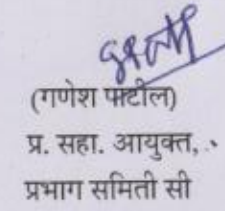 (गणेश पाटील)
प्र. सहा. आयुक्त,
प्रभाग समिती सी